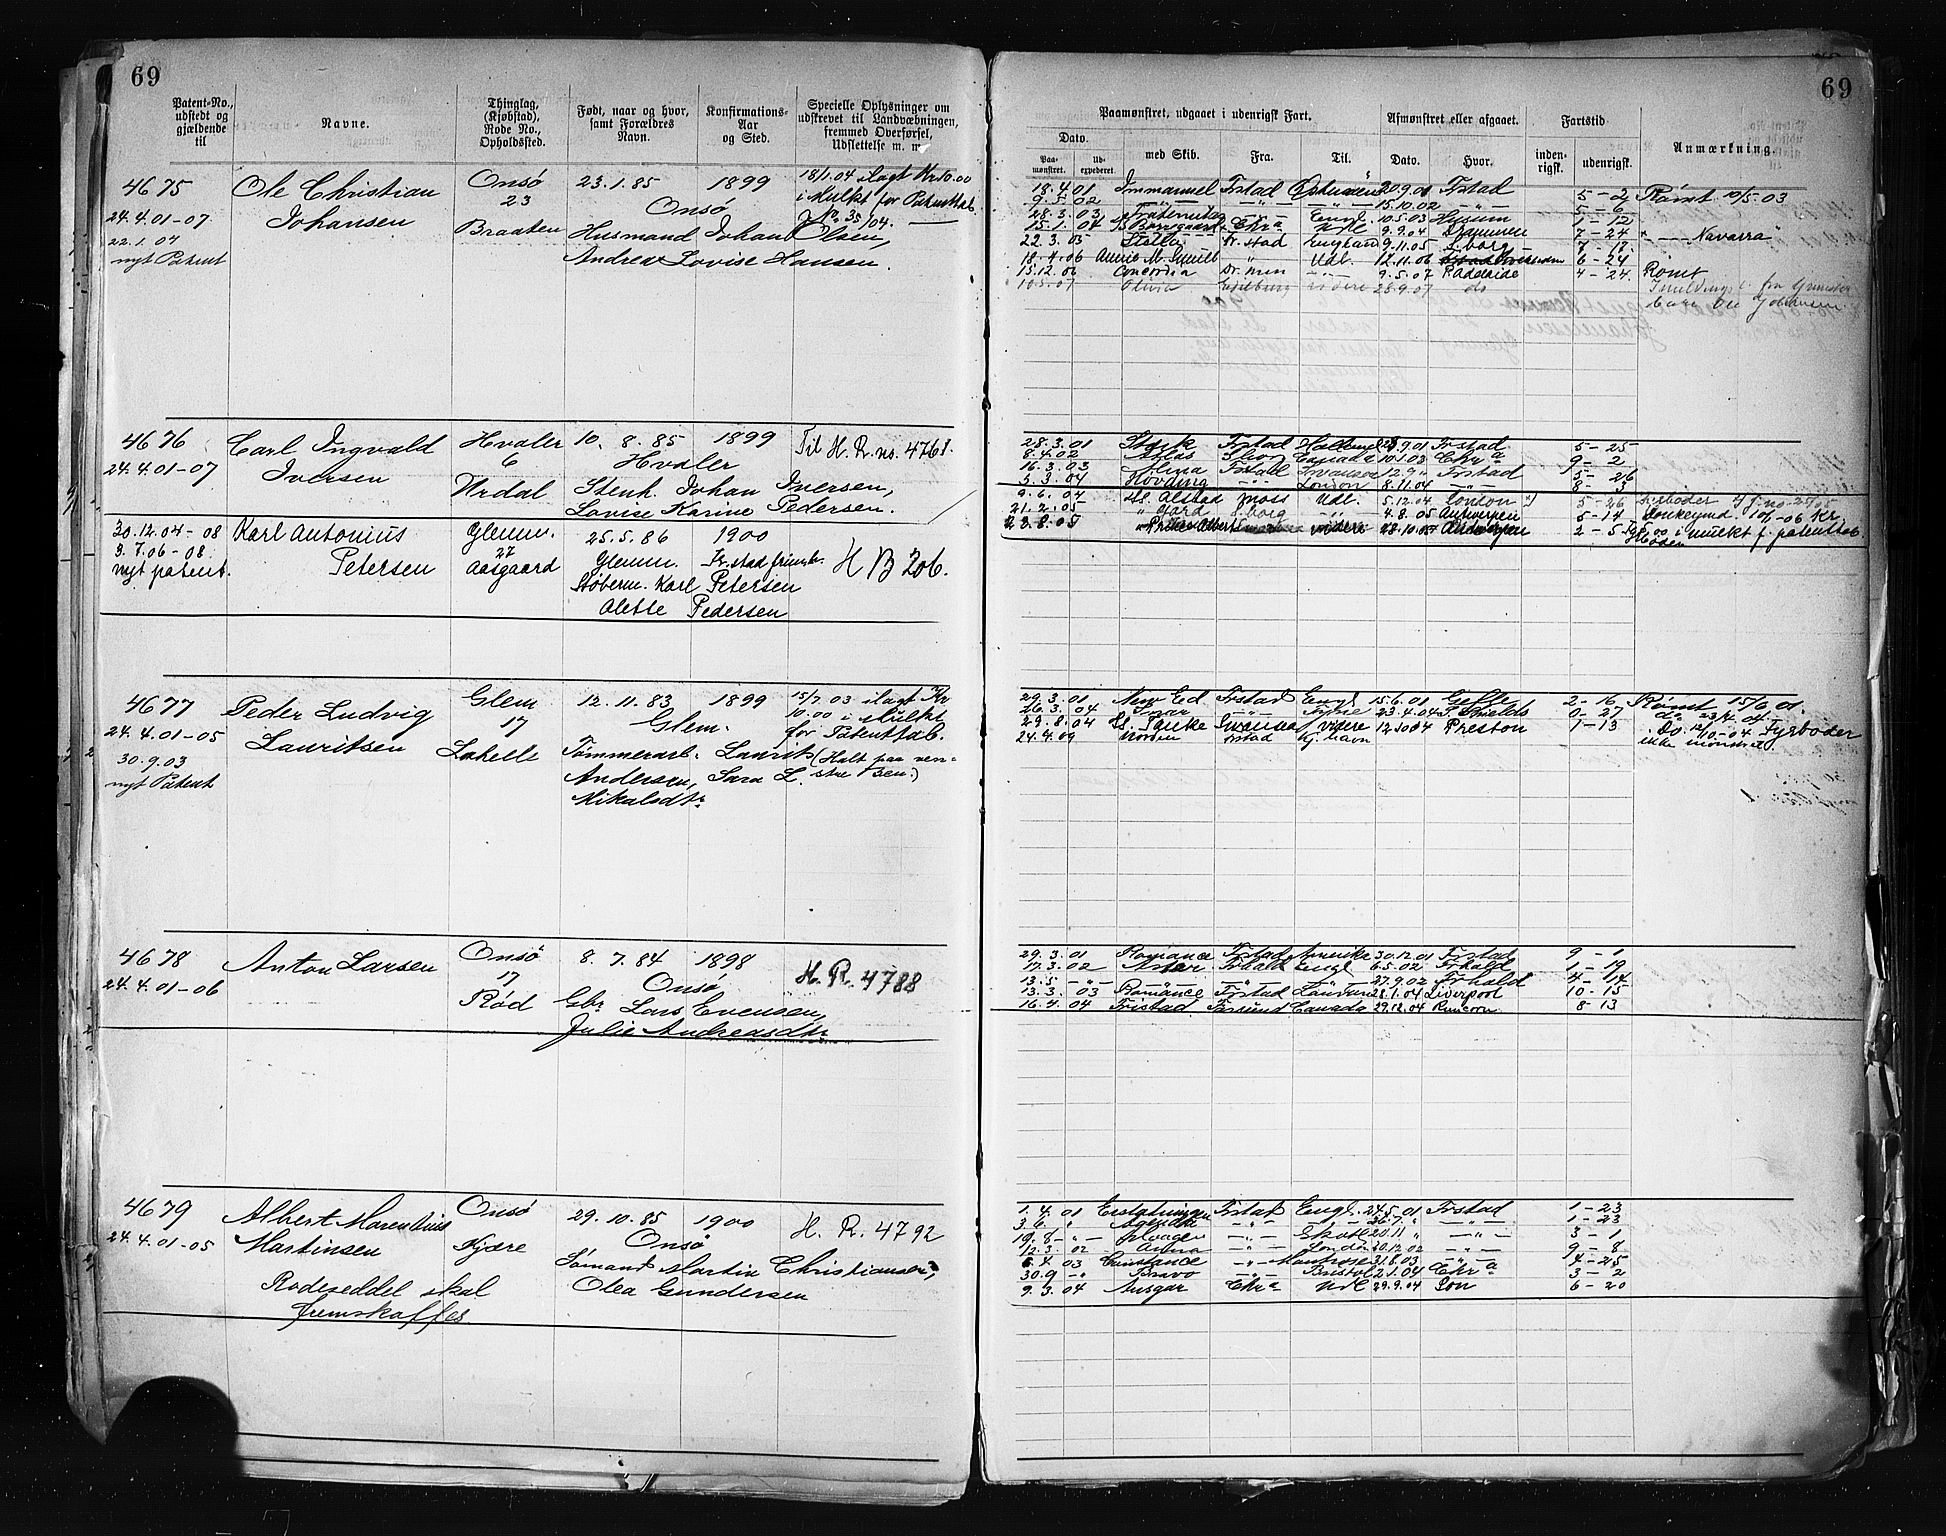 69
Patent-No., udstedt og gjældende til
Navne.
Thinglag, (Kjøbstad), Rode No., Opholdssted.
Født, naar og hvor, samt Forældres Navn.
Konfirmations-Aar og Sted.
Specielle Oplysninger om udskrevet til Landvæbningen, fremmed Overførsel, Udslettelse m. m.
4675 Ole Christian Onsö 23.1.85 1899 18/1.04 ilagt Kr 10.00
24.4.01-07 Johansen 23 Onsö i Mulkt for Patenttab.
22.1.04 Braaten Husmand Johan Olsen,
nyt Patent Andrea Lovise Hansen.
4676 Carl Ingvald Hvaler 10. 8. 85 1899 Til H. R. no. 4761.
24.4.01-07 Iversen 6 Hvaler
Urdal Stenh. Johan Iversen,
Lovise Karine Pedersen.
30.12.04-08 Karl Antonius Glemm. 25.5.86 1900
3.7.06-08 Petersen 27 Glemm. Fr.stad H B 206.
nyt patent. Aasgaard Støberm. Karl Petersen
Alette Pedersen
4677 Peder Ludvig Glem 12.11.83 1899 15/7 03 ilagt Kr
24.4.01-05 Lauritsen 17 Glem. 10.00 i Mulkt
30.9.03 Lahelle Tømmerarb. Laurits for Patenttab.
nyt Patent Andersen, Sara L. (Halt paa ven-
Mikalsdtr stre Ben.)
4678 Anton Larsen Onsö 8.7.84 1898 H. R. 4788
24.4.01-06 17 Onsö
Röd Gbr Lars Evensen,
Julie Andreasdtr
4679 Albert Marentius Onsö 29.10.85 1900 H. R. 4792
24.4.01-05 Martinsen Kjære Onsö
Sömand Martin Christiansen,
Rodeseddel skal Olea Gundersen
fremskaffes
69
Paamønstret, udgaaet i udenrigsk Fart.
Afmønstret eller afgaaet.
Fartstid
Dato.
Paamønstret. Udexpederet.
med Skib. Fra. Til. Dato. Hvor. indenrigsk. udenrigsk. Anmærkning.
18.4.01 Immanuel Frstad 20.9.01 Frstad 5-2 Rømt 10/5.03
9.5.02 -"- -"- 15.10.02 -"- 5-6
28.3.03 -"- Engl 10.5.03 Husum 1-12
15.1.04 Chra Udl 9.9.04 Drammen 7-24 "Navarra"
22.3.05 Fr.stad England 9.11.05 S.borg 7-18
18.4.06 " Udl. 12.11.06 6-24
15.12.06 Concordia Dr.men -"- 9.5.07 Adelaide 4-24 Rømt
10.5.07 Olivia videre 28.9.07 do
28.3.01 Frstad Frstad 5-25
8.4.02 Atlas Canada 10.1.03 Chra 9-2
16.3.03 Alma Frstad Swansea 12.9." Frstad 5-26
5.3.04 Hövding -"- London 8.11.04 -"- 8-3
9.6.04 Alstad Moss Udl. 5.12.04 London 5-26
21.2.05 " Gard S.borg " 4.8.05 Antwerpen 5-14
23.8.05 videre 28.10.05 Antwerpen 2-5 i mulkt f. patenttab.
29.3.01 New Ed Frstad Engl 15.6.01 Gefle 2-16 Rømt 15/6 01.
26.3.04 -"- 23.4.04 S. Shields 0-27 do 23/4.04
29.8.04 Swansea videre 12.10.04 Preston 1-13 Do. 12/10-04 Fyrböder
24.4.09 Norden Frstad Kj.havn ikke mönstret
29.3.01 Romance Frstad Amerika 30.12.01 Frstad 9-1
17.3.02 Frhald Engl 6.5.02 Frhald 1-19
13.5 -"- -"- -"- -"- 27.9.02 Frhald 4-14
13.3.03 Romance Frstad 28.1.04 Liverpool 10-15
16.4.04 Fristad Canada 29.12.04 Runcorn 8-13
1.4.01 Frstad Engl. 24.5.01 Frstad 1-23
3.6. " -"- 26.7." -"- 1-23
19.8 -"- -"- 20.11 " -"- 3-1
12.3.02 -"- London 20.12.02 -"- 9-8
6.4.03 Constance -"- Montrose 31.8.03 -"- 4-25
30.9 -"- Bravo -"- Bristol 2.1.04 Chra 3-2
9.3.04 Ansgar Chra Udl 29.9.04 Son 6-20